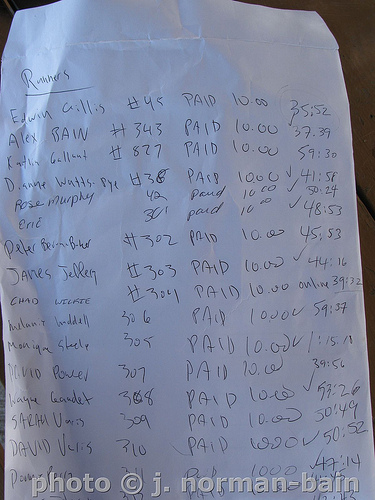 Runners
Edwin Gillis #45 PAID 10.00 35:52
ALEX BAIN #343 PAID 10.00 37.39
Kathy Gallant #827 PAID 10.00 59:30
Dianne Watts-Pye #38 PAID 1000 ✓ 41:58
Rose Murphy 42 paid 10.00 50:24
ERIC 301 paid 10.00 ✓ 48:53
Peter #302 PAID 10.00 45:53
JAMES Jeffery #303 PAID 10.00 ✓ 44:16
CHAD #304 PAID 10.00 online 39:32
Melanie 306 PAID 10.00 ✓ 59:37
Monique Steele 305 PAID 10.00 ✓ 1:15.18
DAVID Power 307 PAID 10.00 39:56
Wayne Gaudet 308 PAID 10.00 ✓ 53:26
SARAH 309 PAID 10.00 50:49
DAVID 310 PAID 1000 ✓ 50:52
311 Paid 1000 ✓ 47:14
photo © j. norman-bain